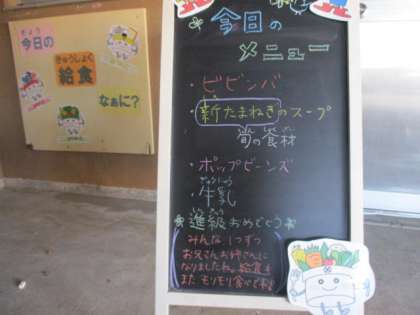 きょう
今日の
きゅうしょく
給食
なぁに?
今日の
メニュー
・ビビンバ
・新たまねぎのスープ
旬の食材
・ポップビーンズ
ぎゅうにゅう
・牛乳
しんきゅう
進級おめでとう
みんな 1つずつ
お兄さんお姉さんに
なりましたね。給食も
また モリモリ食べてね